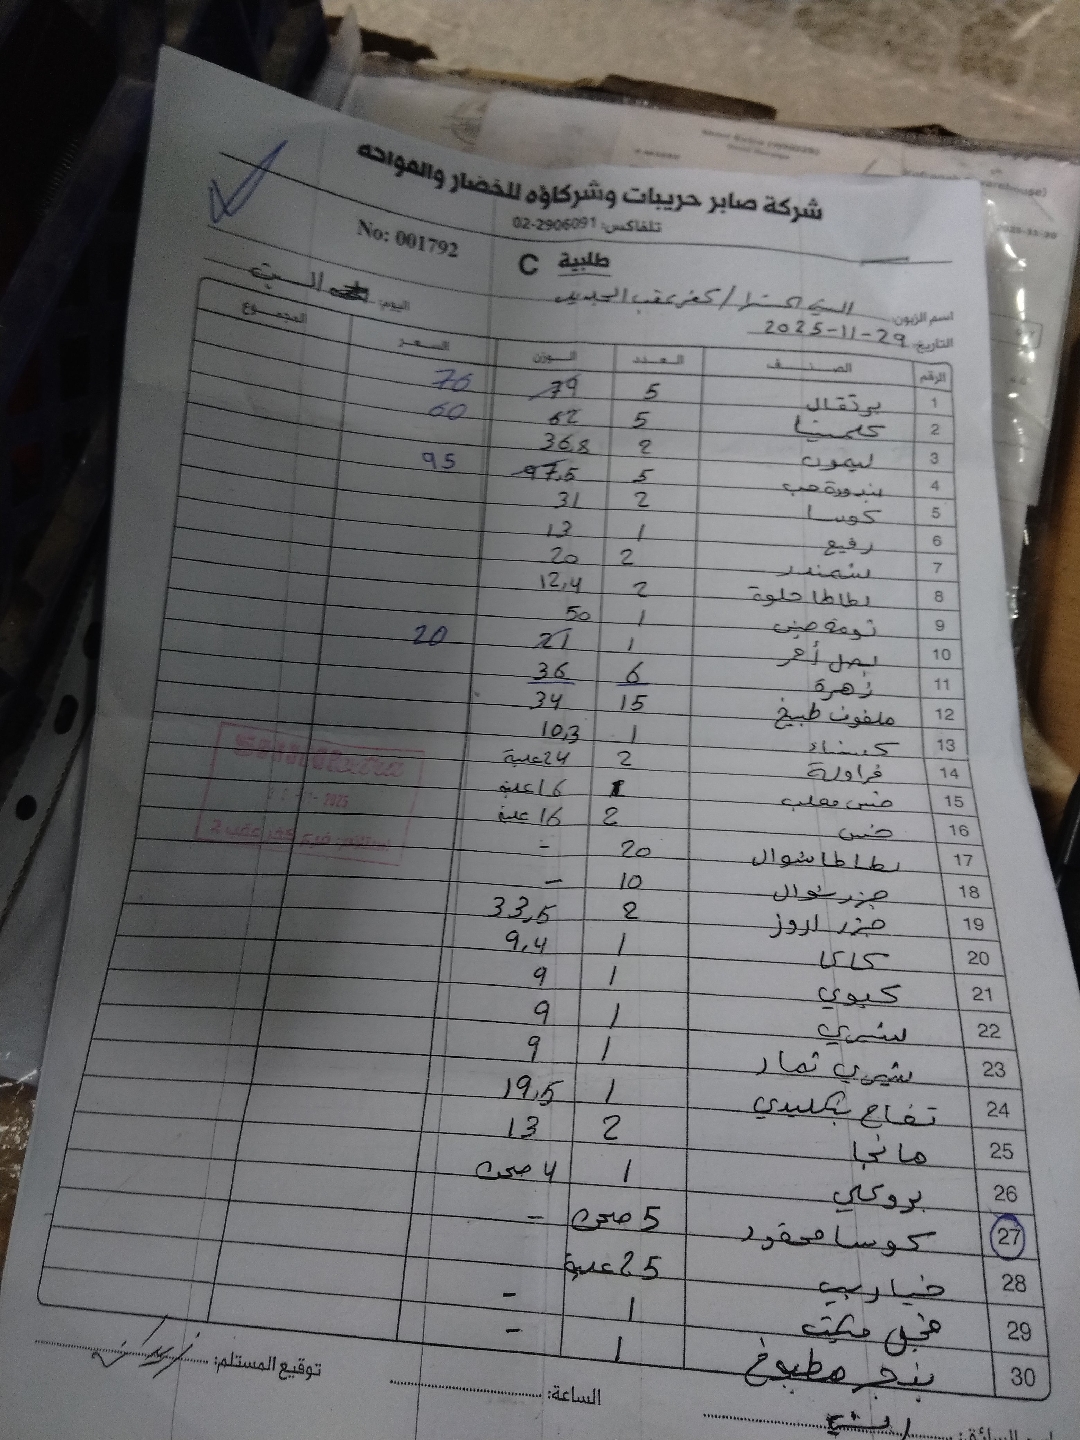 شركة صابر حريبات وشركاؤه للخضار والفواكه
تلفاكس: 02-2906091
No: 001792
طلبية C
اسم الزبون: اكسترا / كفر عقب الجديد
اليوم: السبت
التاريخ: 29-11-2025
الرقم الصنف العدد الوزن السعر المجموع
1 برتقال 5 79 76
2 كلمنتينا 5 62 60
3 ليمون 2 36,8
4 بندورة حب 5 97,5 95
5 كوسا 2 31
6 رفيع 1 13
7 شمندر 2 20
8 بطاطا حلوة 2 12,4
9 تومة صيني 1 50
10 بصل أحمر 1 21 20
11 زهرة 6 36
12 ملفوف طبيخ 15 34
13 كستناء 1 10,3
14 فراولة 2 24 علبة
15 خس معلب 1 16 علبة
16 خس 2 16 علبة
17 بطاطا شوال 20 -
18 جزر شوال 10 -
19 جزر 2 33,5
20 كاكا 1 9,4
21 كيوي 1 9
22 شيري 1 9
23 شيري تمار 1 9
24 تفاح 1 19,5
25 مانجا 2 13
26 بروكلي 1 4 صحن
27 كوسا محفور 5 صحن -
28 خيار بيبي 25 علبة
29 فجل 1 -
30 بنجر مطبوخ 1 -
2025
كفر عقب 2
توقيع المستلم:
الساعة: